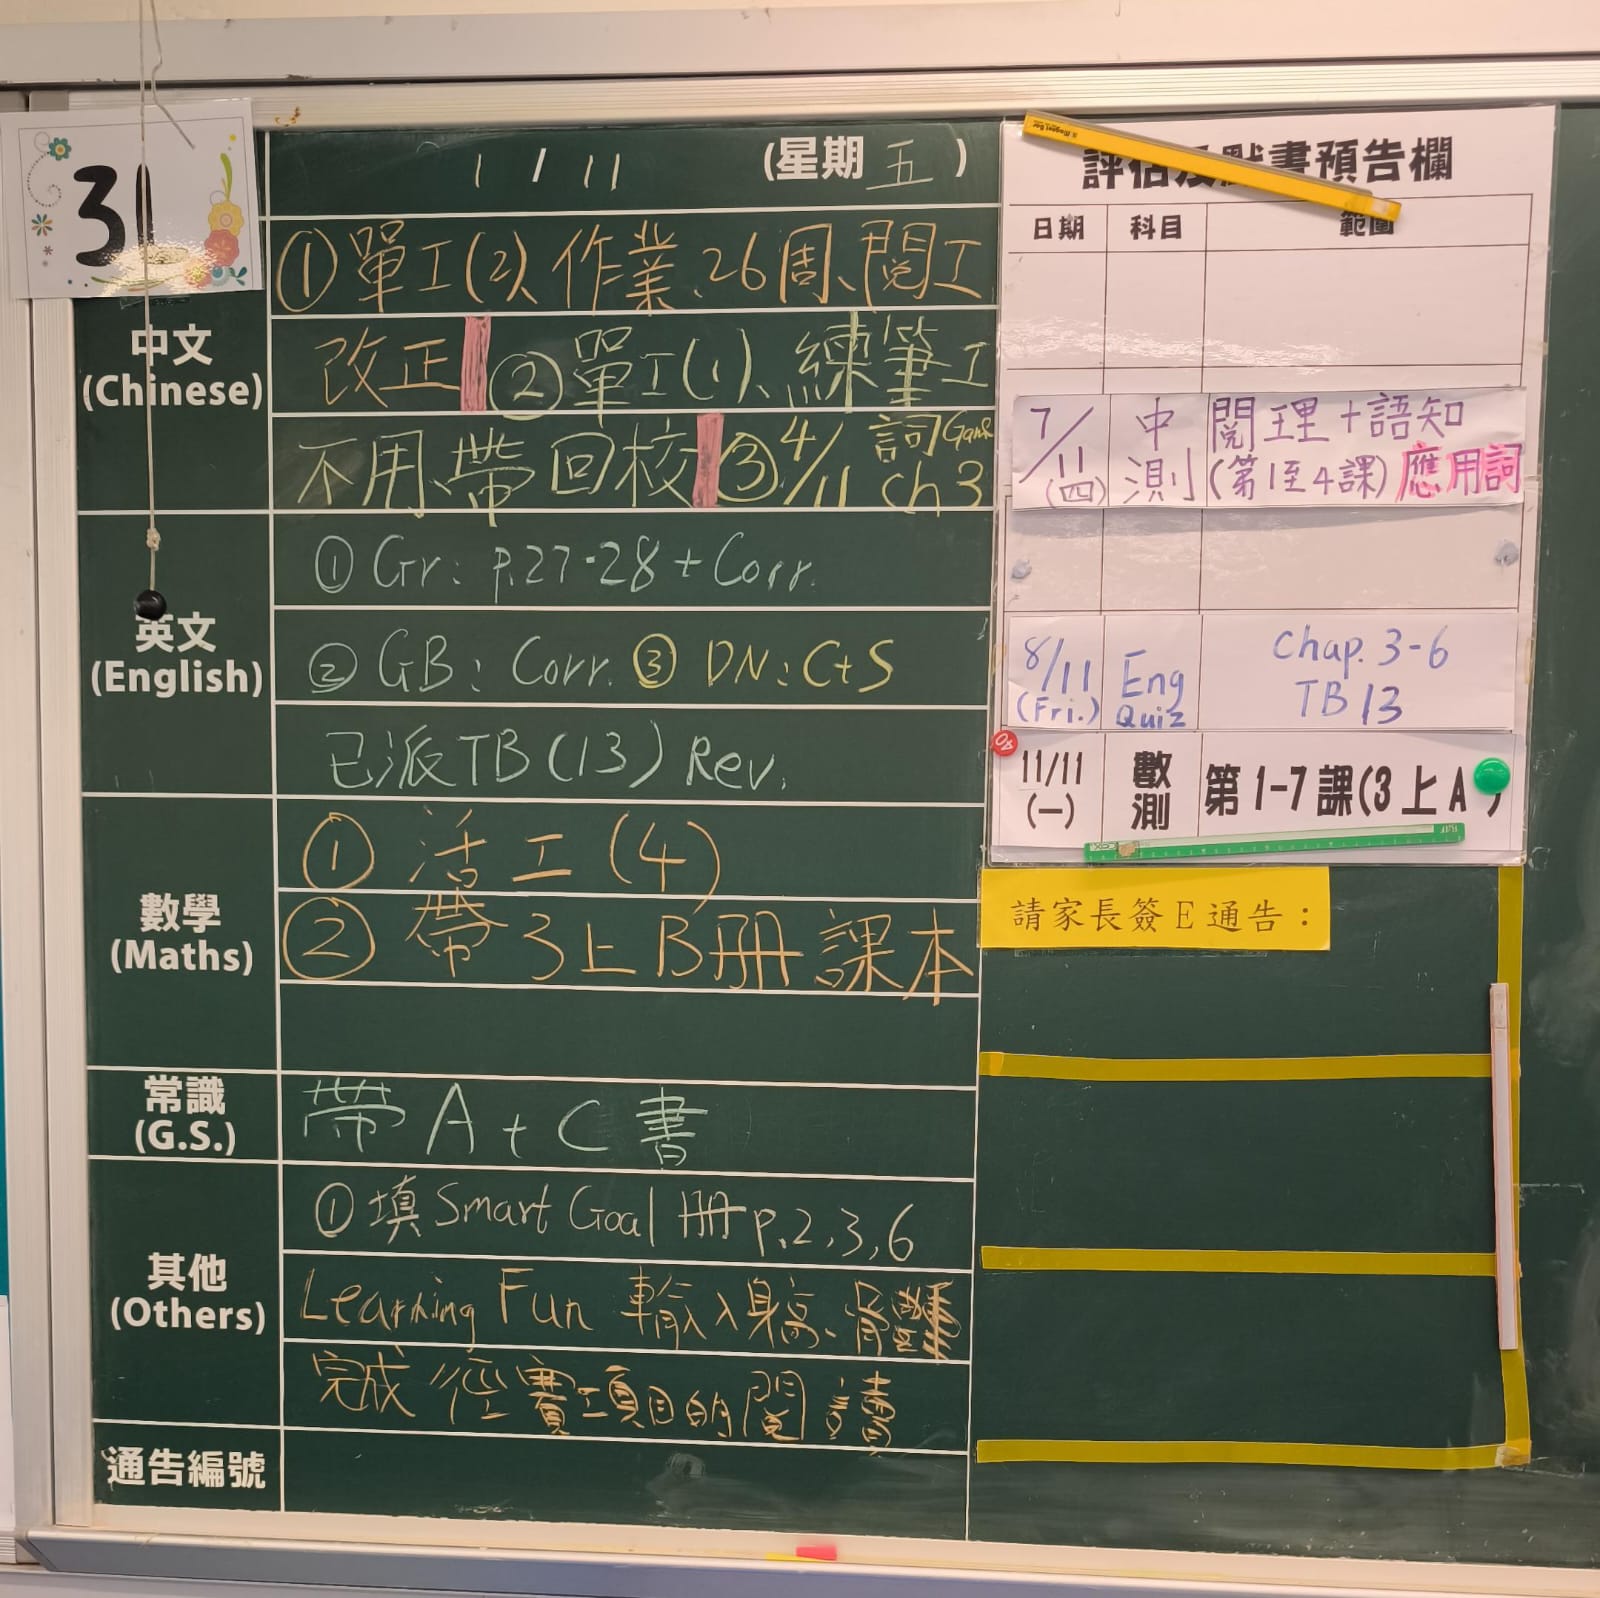 3
1 / 11 (星期 五 )
中文
(Chinese)
①單工(2)、作業、26周、閱工
改正 ②單工(1)、練筆工
不用帶回校 ③4/11 詞Game
Ch 3
英文
(English)
① Gr: p.27-28 + Corr.
② GB: Corr. ③ DN: C+S
已派TB(13) Rev.
數學
(Maths)
① 活工(4)
② 帶3上B冊課本
常識
(G.S.)
帶 A + C 書
其他
(Others)
①填 Smart Goal 冊 p.2,3,6
Learning Fun 輸入身高、體重
完成 徑賽項目的閱讀
通告編號
評估及默書預告欄
日期 科目 範圍
7/11 (四) 中測 閱理+語知
(第1至4課) 應用詞
8/11 (Fri.) Eng Quiz Chap. 3-6
TB 13
11/11 (一) 數測 第1-7課(3上A)
請家長簽E通告：